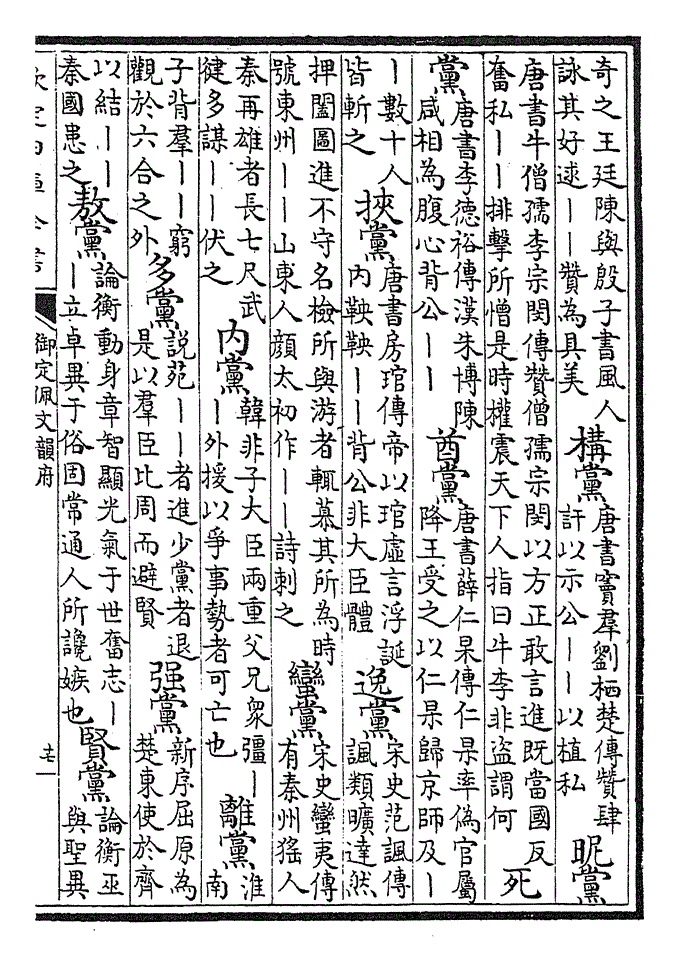 奇之王廷陳與殷子書風人詠其好逑——贊為具美構黨唐書竇羣劉栖楚傳贊肆訐以示公——以植私昵黨
唐書牛僧孺李宗閔傳贊僧孺宗閔以方正敢言進既當國反奮私——排擊所憎是時權震天下人指曰牛李非盜謂何死
黨唐書李德裕傳漢朱博陳咸相為腹心背公——酋黨唐書薛仁杲傳仁杲率偽官屬降王受之以仁杲歸京師及—
—數十人皆斬之挾黨唐書房琯傳帝以琯虛言浮誕內鞅鞅——背公非大臣體逸黨宋史范諷傳諷類曠達然
押闔圖進不守名檢所與游者輒慕其所為時號東州——山東人顏太初作——詩刺之蠻黨宋史蠻夷傳有秦州猺人
秦再雄者長七尺武健多謀——伏之内黨韓非子大臣兩重父兄衆彊——外援以爭事勢者可亡也離黨淮南
子背羣——窮觀於六合之外多黨說苑——者進少黨者退是以羣臣比周而避賢强黨新序屈原為楚東使於齊
以結——秦國患之敖黨論衡動身章智顯光氣于世奮志——立卓異于俗固常通人所讒嫉也賢黨論衡巫與聖異
欽定四庫全書
御定佩文韻府